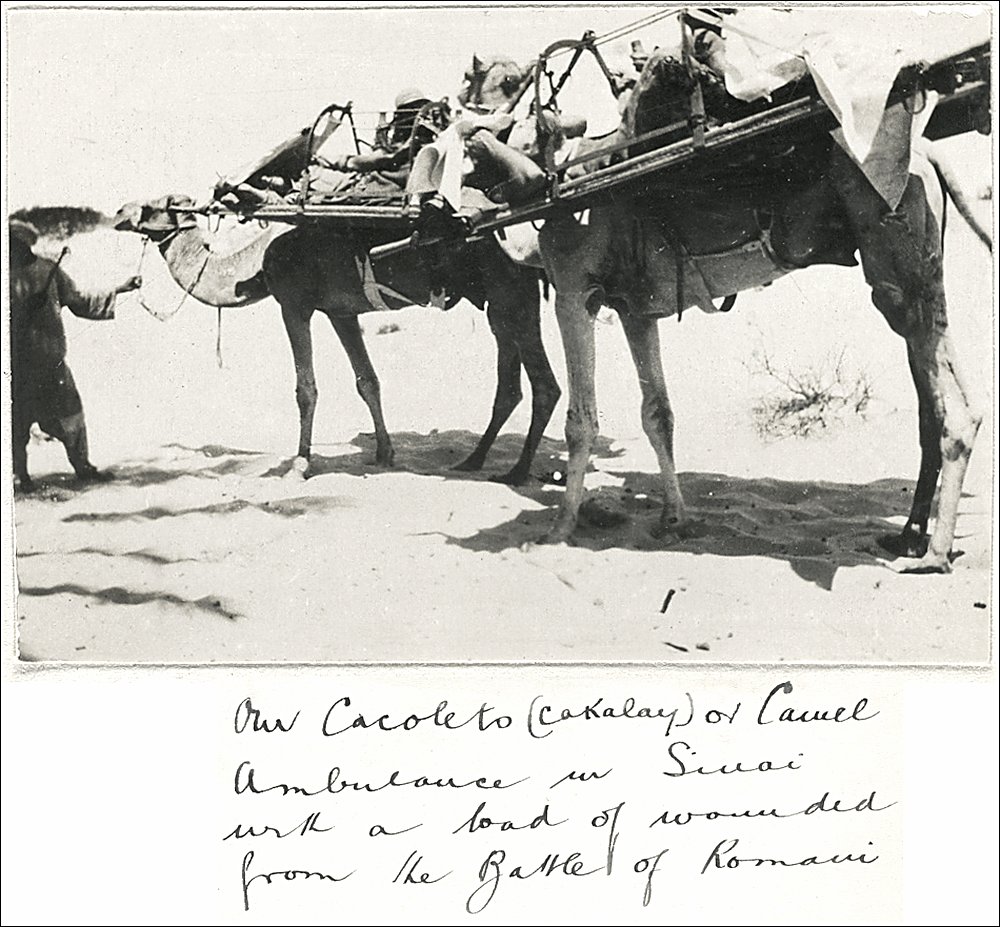 Our Cacolets (cakalay) or Camel
Ambulance in Sinai
with a load of wounded
from the Battle of Romani